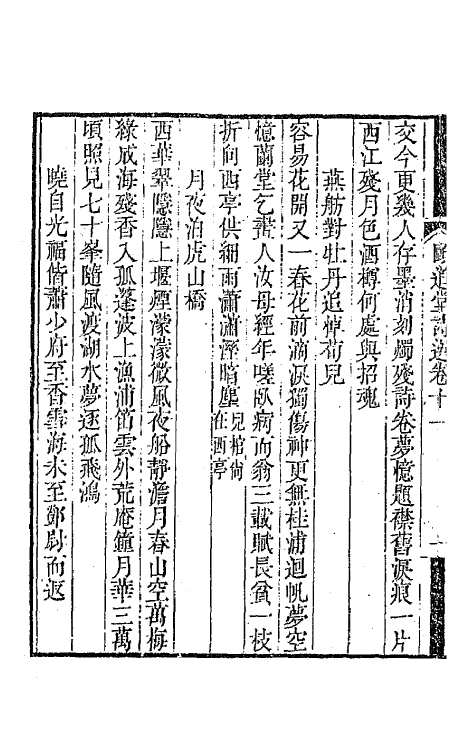 道堂詩選卷十一
交今更幾人存墨消刻燭殘詩卷夢憶題襟舊淚痕一片
西江殘月色酒樽何處與招魂
燕舫對牡丹追悼荀兒
容易花開又一春花前滴淚獨傷神更無桂浦迴帆夢空
憶蘭堂乞藥人汝母經年嗟臥病而翁三載賦長貧一枝
折向西亭供細雨瀟瀟溼暗塵兒棺尚在西亭
月夜泊虎山橋
西華翠隱隱上堰煙濛濛微風夜船靜澹月春山空萬梅
綠成海殘香入孤篷波上漁浦笛雲外荒庵鐘月華三萬
頃照見七十峯隨風渡湖水夢逐孤飛鴻
曉自光福偕蕭少府至香雪海未至鄧尉而返